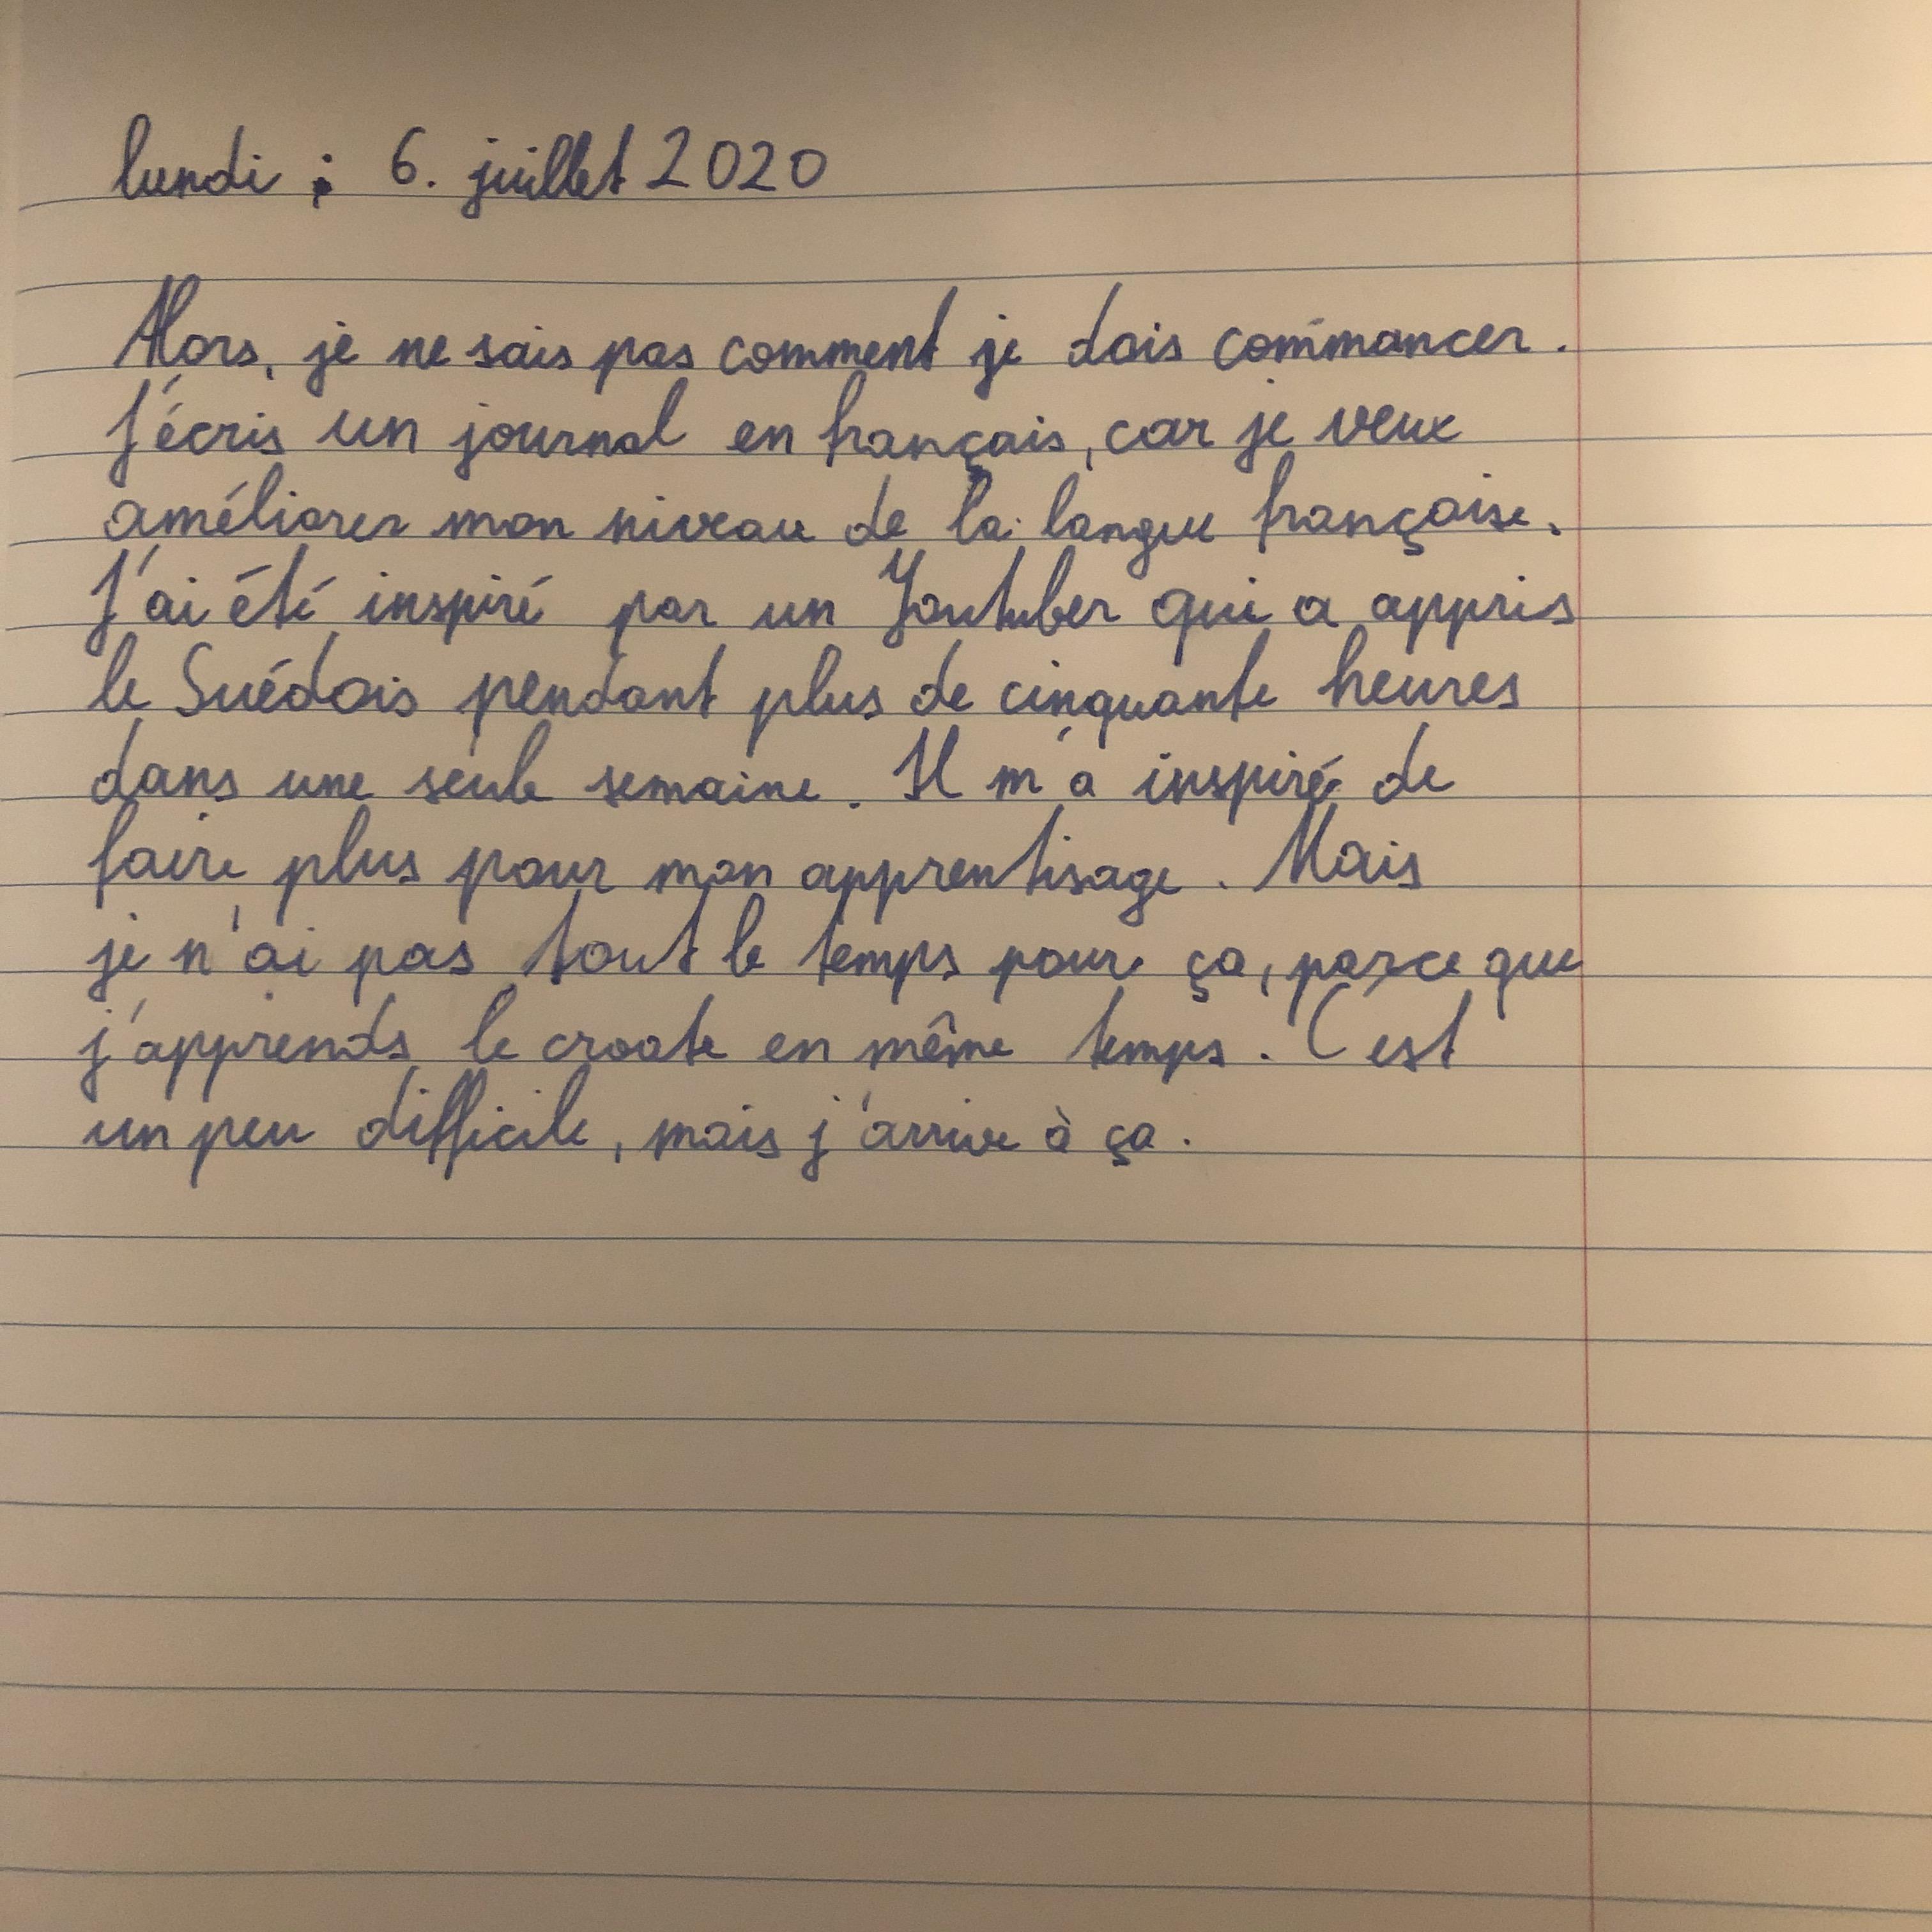 lundi ; 6. juillet 2020
Alors, je ne sais pas comment je dois commancer.
J'écris un journal en français, car je veux
améliorer mon niveau de la langue française.
J'ai été inspiré par un Youtuber qui a appris
le Suédois pendant plus de cinquante heures
dans une seule semaine. Il m'a inspiré de
faire plus pour mon apprentisage. Mais
je n'ai pas tout le temps pour ça, parce que
j'apprends le croate en même temps. C'est
un peu difficile, mais j'arrive à ça.